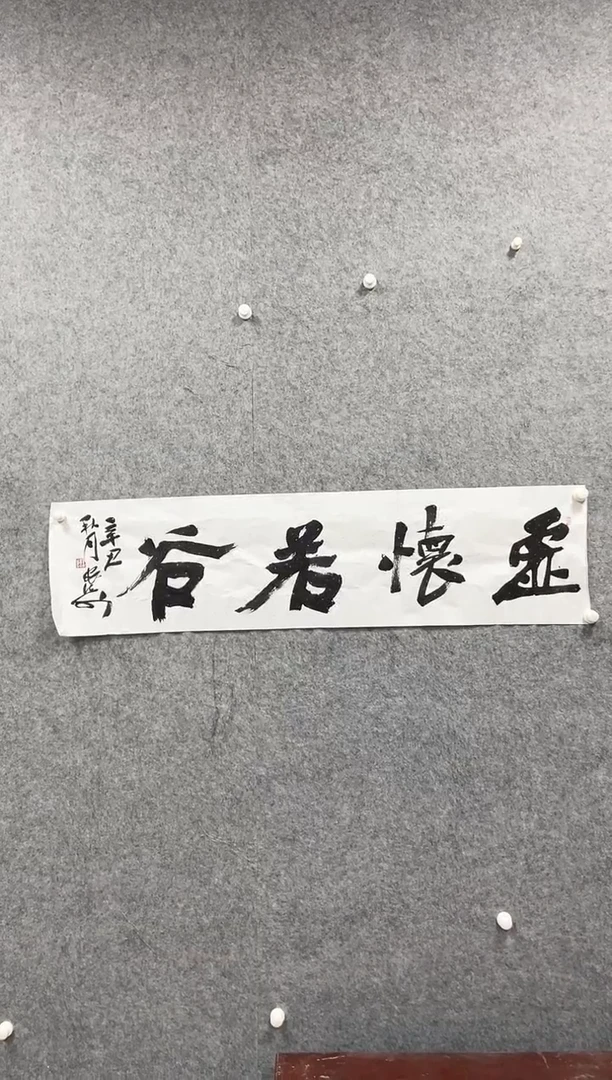 虛懷若谷
辛丑
秋月